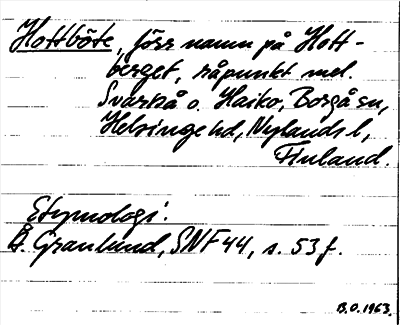 Hottböte, förr namn på Hott-
berget, råpunkt mel.
Svartså o. Haiko, Borgå sn,
Helsinge hd, Nylands l,
Finland.
Etymologi:
Å. Granlund, SNF 44, s. 53 f.
B.O. 1963.